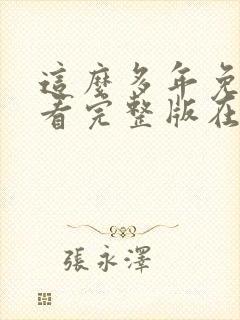 這麼多年免
看完整版在
張永澤